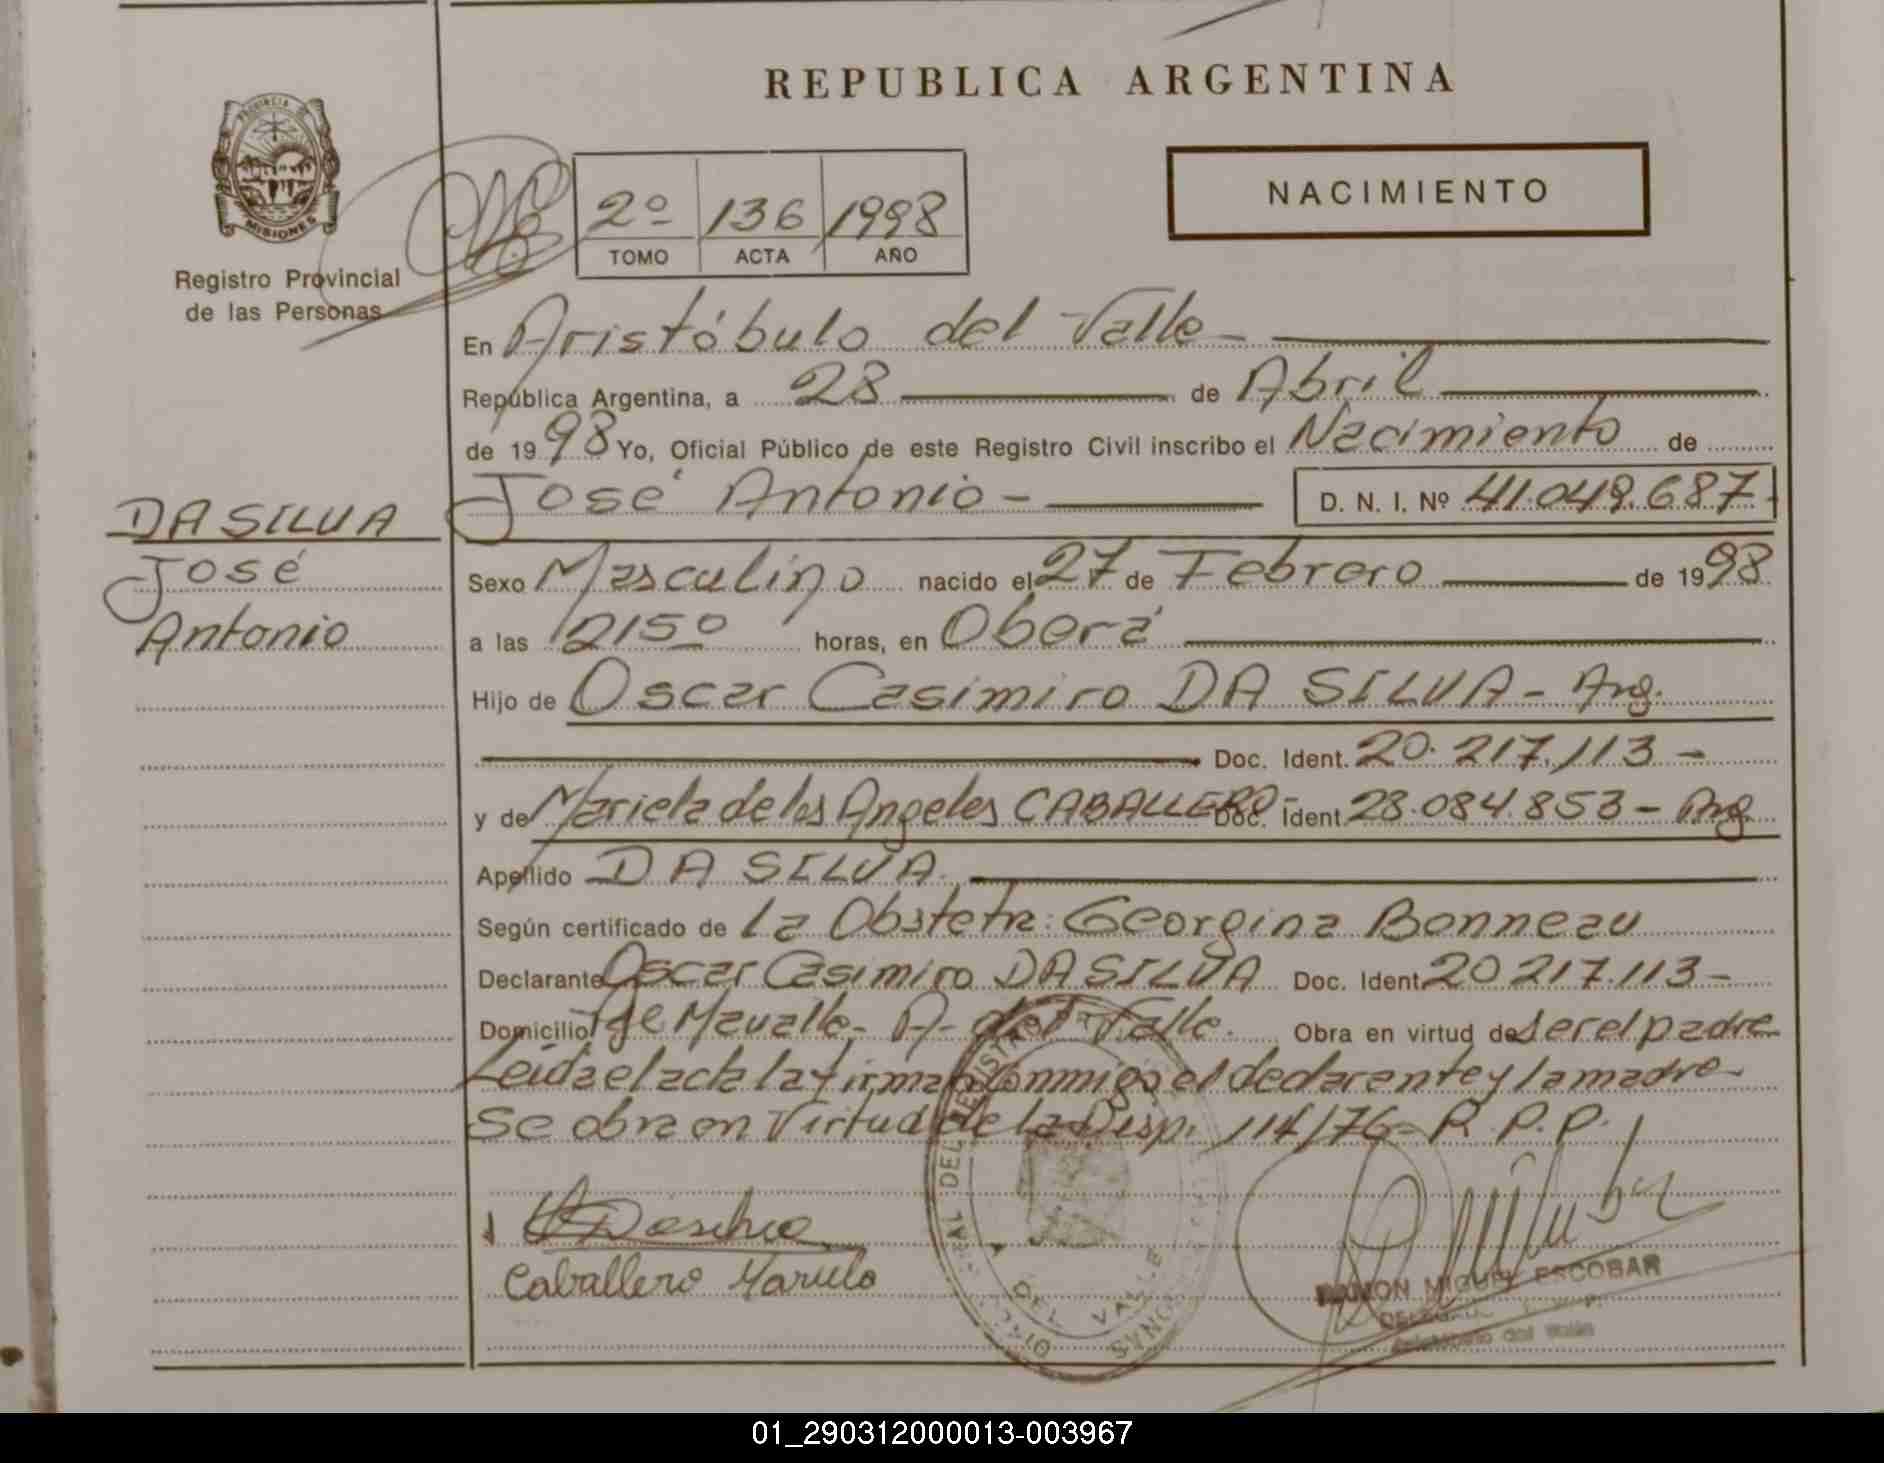 REPUBLICA ARGENTINA
PROVINCIA DE
MISIONES
Registro Provincial
de las Personas
2º 136 1998
TOMO ACTA AÑO
NACIMIENTO
En Aristóbulo del Valle
República Argentina, a 28 de Abril
de 1998 Yo, Oficial Público de este Registro Civil inscribo el Nacimiento de
José Antonio - D. N. I. Nº 41.049.687-
DA SILVA
José
Antonio
Sexo Masculino nacido el 27 de Febrero de 1998
a las 1215º horas, en Oberá
Hijo de Oscar Casimiro DA SILVA - Arg.
Doc. Ident. 20.217.113 -
y de Mariela de los Angeles CABALLERO- Doc. Ident 28.084.853 - Arg.
Apellido DA SILVA.
Según certificado de La Obstetr: Georgina Bonneau
Declarante Oscar Casimiro DA SILVA Doc. Ident. 20 217.113 -
Domicilio A- del Valle. Obra en virtud de ser el padre
Leida el acta la firman conmigo el declarante y la madre-
Se obra en Virtud de la Disp. 114/76- R.P.P.
Caballero Mariela
DEL VALLE
RAMON MIGUEL ESCOBAR
Aristobulo del Valle
01_290312000013-003967